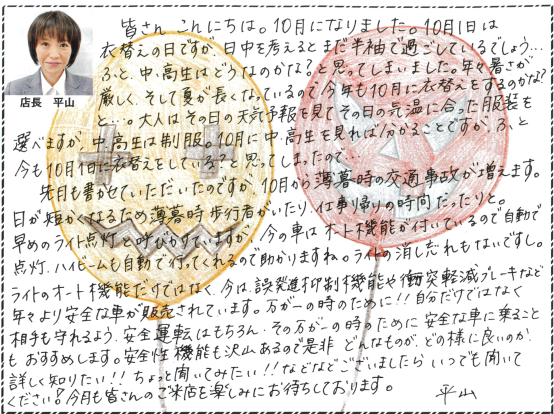 皆さん こんにちは。10月になりました。10月1日は
衣替えの日ですが、日中を考えるとまだ半袖で過ごしているでしょう…
ふと、中、高生はどうなのかな?と思ってしまいました。年々暑さが
厳しく、そして夏が長くなっているので今年も10月に衣替えをするのかな?
と…。大人はその日の天気予報を見てその日の気温に合った服装を
店長 平山
選べますが、中、高生は制服。10月に中、高生を見れば分かることですが、ふと
今も10月1日に衣替えをしている?と思ってしまったので…
先月も書かせていただいたのですが、10月から薄暮時の交通事故が増えます。
日が短かくなるため薄暮時歩行者がいたり、仕事帰りの時間だったりと。
早めのライト点灯と呼びかけていますが、今の車はオート機能が付いているので自動で
点灯、ハイビームも自動で行ってくれるので助かりますね。ライトの消し忘れもないですし。
ライトのオート機能だけではなく、今は、誤発進抑制機能や衝突軽減ブレーキなど
年々より安全な車が販売されています。万が一の時のために!!自分だけではなく
相手も守れるよう、安全運転はもちろん、その万が一の時のために安全な車に乗ること
もおすすめします。安全性機能も沢山あるので是非どんなものが、どの様に良いのか、
詳しく知りたい!!ちょっと聞いてみたい!!などなどございましたらいつでも聞いて
ください?今月も皆さんのご来店を楽しみにお待ちしております。
平山